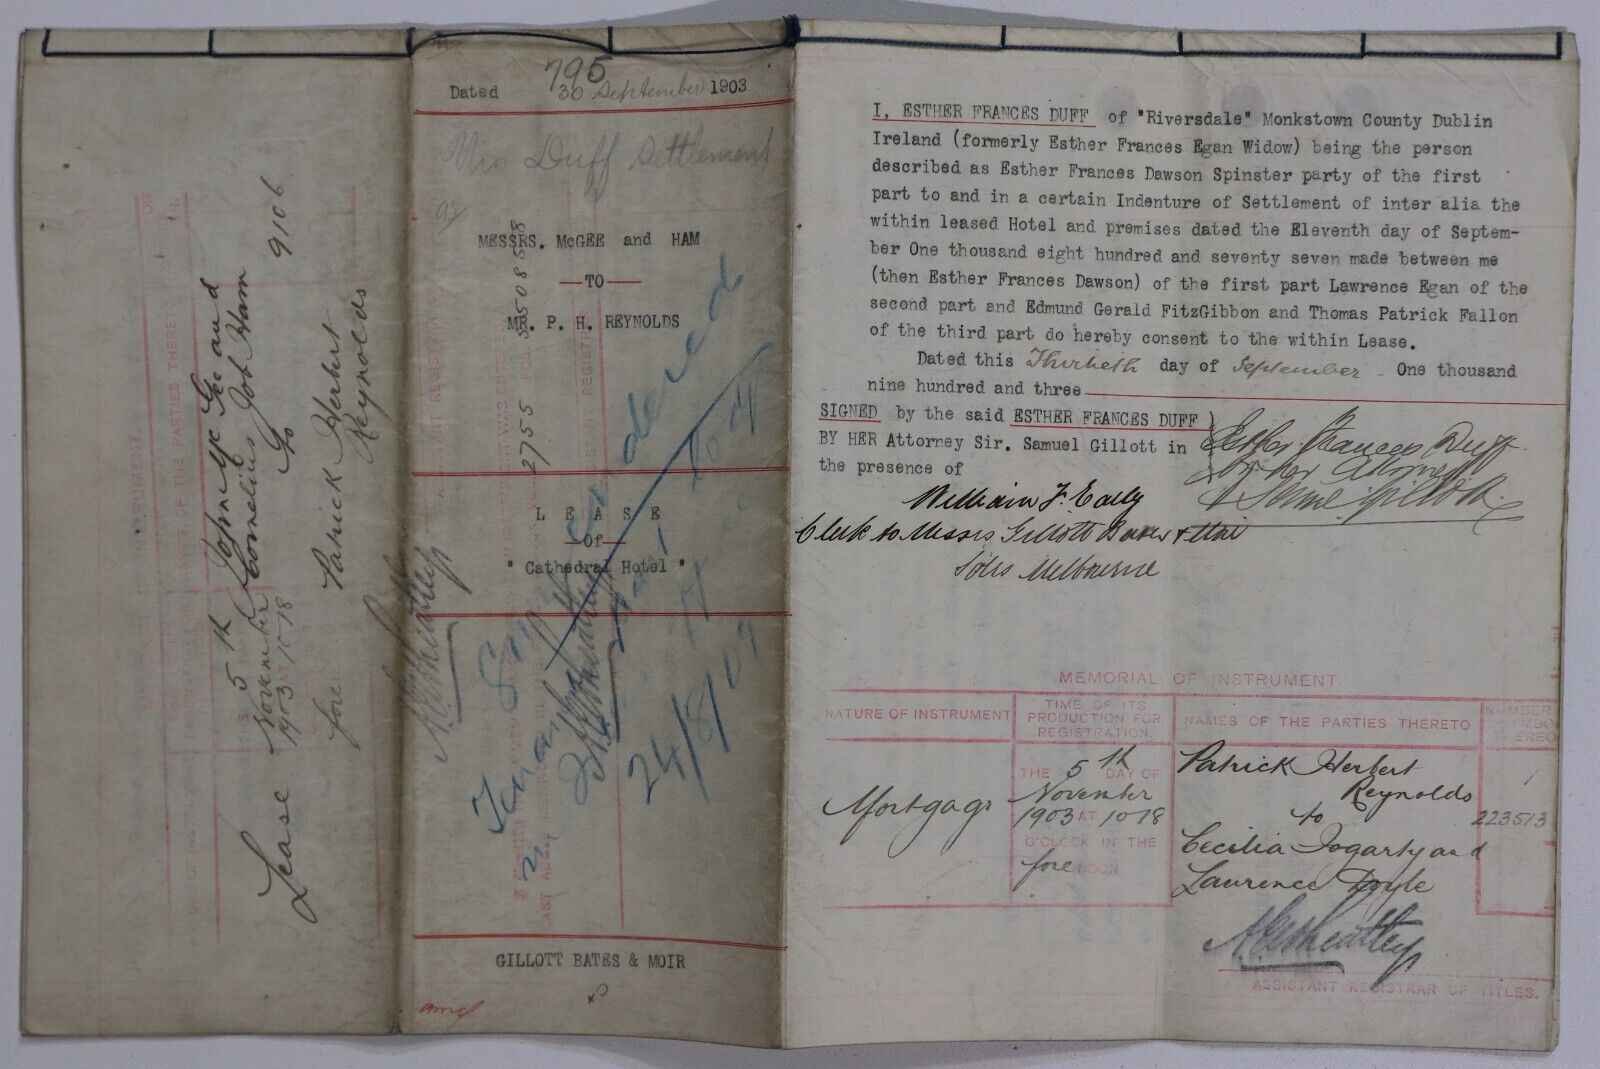 795
Dated 30 September 1903
Mrs Duff Settlement
MESSRS. McGEE and HAM
TO
MR. P. H. REYNOLDS
L E A S E
Of
" Cathedral Hotel "
GILLOTT BATES & MOIR
2755
550858
24/8/07
Lease
5th
November
1903 AT 1018
fore
John McGee and
Cornelius Job Ham
to
Patrick Herbert
Reynolds
9106
I, ESTHER FRANCES DUFF of "Riversdale" Monkstown County Dublin
Ireland (formerly Esther Frances Egan Widow) being the person
described as Esther Frances Dawson Spinster party of the first
part to and in a certain Indenture of Settlement of inter alia the
within leased Hotel and premises dated the Eleventh day of Septem-
ber One thousand eight hundred and seventy seven made between me
(then Esther Frances Dawson) of the first part Lawrence Egan of the
second part and Edmund Gerald FitzGibbon and Thomas Patrick Fallon
of the third part do hereby consent to the within Lease.
Dated this Thirtieth day of September One thousand
nine hundred and three
SIGNED by the said ESTHER FRANCES DUFF )
BY HER Attorney Sir. Samuel Gillott in
the presence of
Esther Frances Duff
by her Attorney
William J.
Clerk to Messrs Gillott Bates & Moir
Solrs Melbourne
MEMORIAL OF INSTRUMENT.
NATURE OF INSTRUMENT
TIME OF ITS
PRODUCTION FOR
REGISTRATION.
NAMES OF THE PARTIES THERETO
NUMBER
Mortgage
THE 5th DAY OF
November
1903 AT 1018
O'CLOCK IN THE
fore NOON
Patrick Herbert
Reynolds
to
Cecilia Fogarty and
Laurence Doyle
223513
ASSISTANT REGISTRAR OF TITLES.